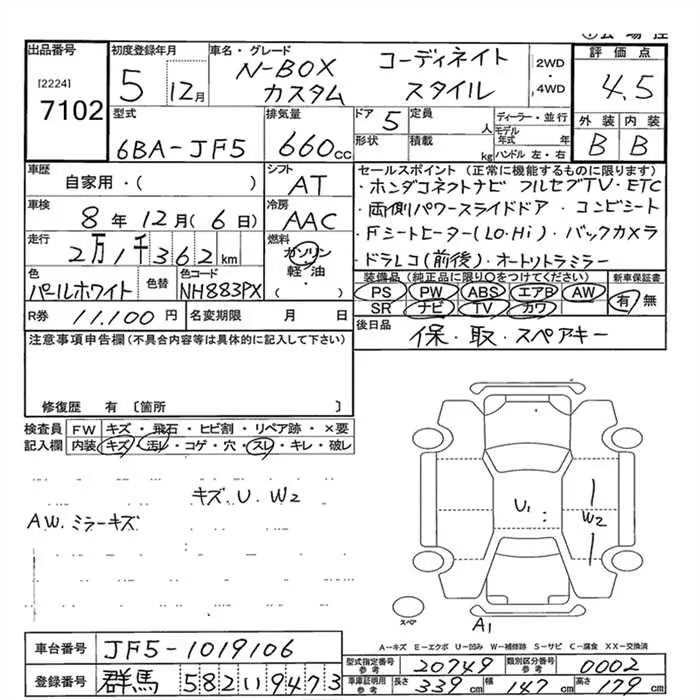 出品番号
[2224]
7102
初度登録年月
5 12月
車名・グレード
N-BOX コーディネイト
カスタム スタイル
2WD
・
4WD
評価点
4.5
外装 内装
B B
型式
6BA-JF5
排気量
660cc
ドア 5
定員 人
形状
積載 kg
ディーラー・並行
モデル年式 年
ハンドル 左・右
車歴
自家用・( )
シフト
AT
車検
8年12月(6日)
冷房
AAC
走行
2万1千362km
燃料
ガソリン
・軽・油・
( )
色
パールホワイト
色替
色コード
NH883PX
R券 11,100円
名変期限 月 日
セールスポイント (正常に機能するものに限ります)
・ホンダコネクトナビ フルセグTV・ETC
・両側パワースライドドア・コンビシート
・Fシートヒーター(Lo・Hi)・バックカメラ
・ドラレコ(前後)・オートリトラミラー
装備品 (純正品に限り〇をつけてください)
新車保証書
PS PW ABS エアB AW
有・無
SR ナビ TV カワ
後日品
保・取・スペアキー
注意事項申告欄(不具合内容等は具体的に記入して下さい)
修復歴 有 〔箇所 〕
検査員記入欄
FW キズ・飛石・ヒビ割・リペア跡・×要
内装 キズ・汚レ・コゲ・穴・スレ・キレ・破レ
キズ、U、W2
AW、ミラーキズ
U1
W2
A1
スペア
A-キズ E-エクボ U-凹み W-補修跡 S-サビ C-腐食 XX-交換済
車台番号
JF5-1019106
登録番号
群馬 582 い 9473
型式指定番号 参考
20749
類別区分番号 参考
0002
車庫証明用 参考
長さ 339cm 幅 147cm 高さ 179cm